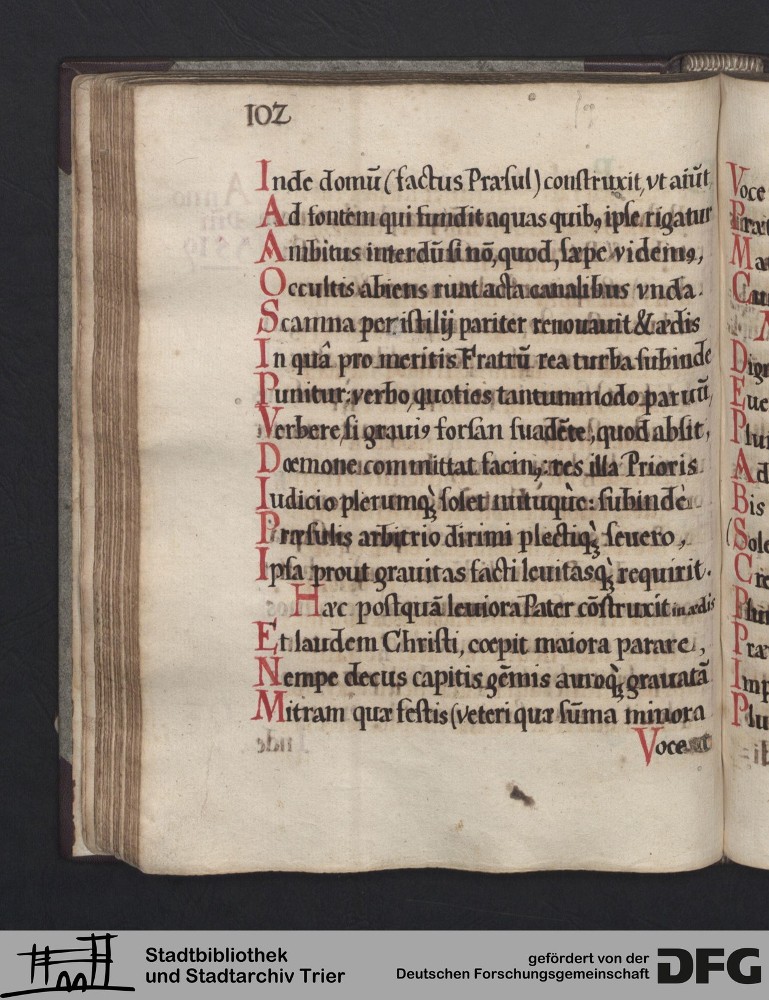 102
Inde domū (factus Præsul) construxit, vt aiūt
Ad fontem qui fundit aquas quibꝯ ipse rigatur
Ambitus interdū si nō, quod, sæpe videmꝯ,
Occultis abiens runt acta canalibus vnda.
Scamna peristilij pariter renouauit & ædis
In quâ pro meritis Fratrū rea turba subinde
Punitur: verbo, quoties tantummodo paruū,
Verbere, si grauiꝯ forsan suadēte, quod absit,
Dæmone committat facinꝯ: res illa Prioris
Iudicio plerumqꝫ̀ solet nutuquè: subindè
Præsulis arbitrio dirimi plectiqꝫ̀ seuero,
Ipsa prout grauitas facti leuitasqꝫ̀ requirit.
Hæc postquā leuiora Pater cōstruxit in ædis
Et laudem Christi, cœpit maiora parare,
Nempe decus capitis gēmis auroqꝫ̀ grauatā
Mitram quæ festis (veteri quæ sūma minora
Voce
Voce
Præ
Ma
Dign
Eue
Plur
Ad
Bis
(Sole
Cre
Præ
Imp
Plu
Stadtbibliothek
und Stadtarchiv Trier
gefördert von der
Deutschen Forschungsgemeinschaft
DFG